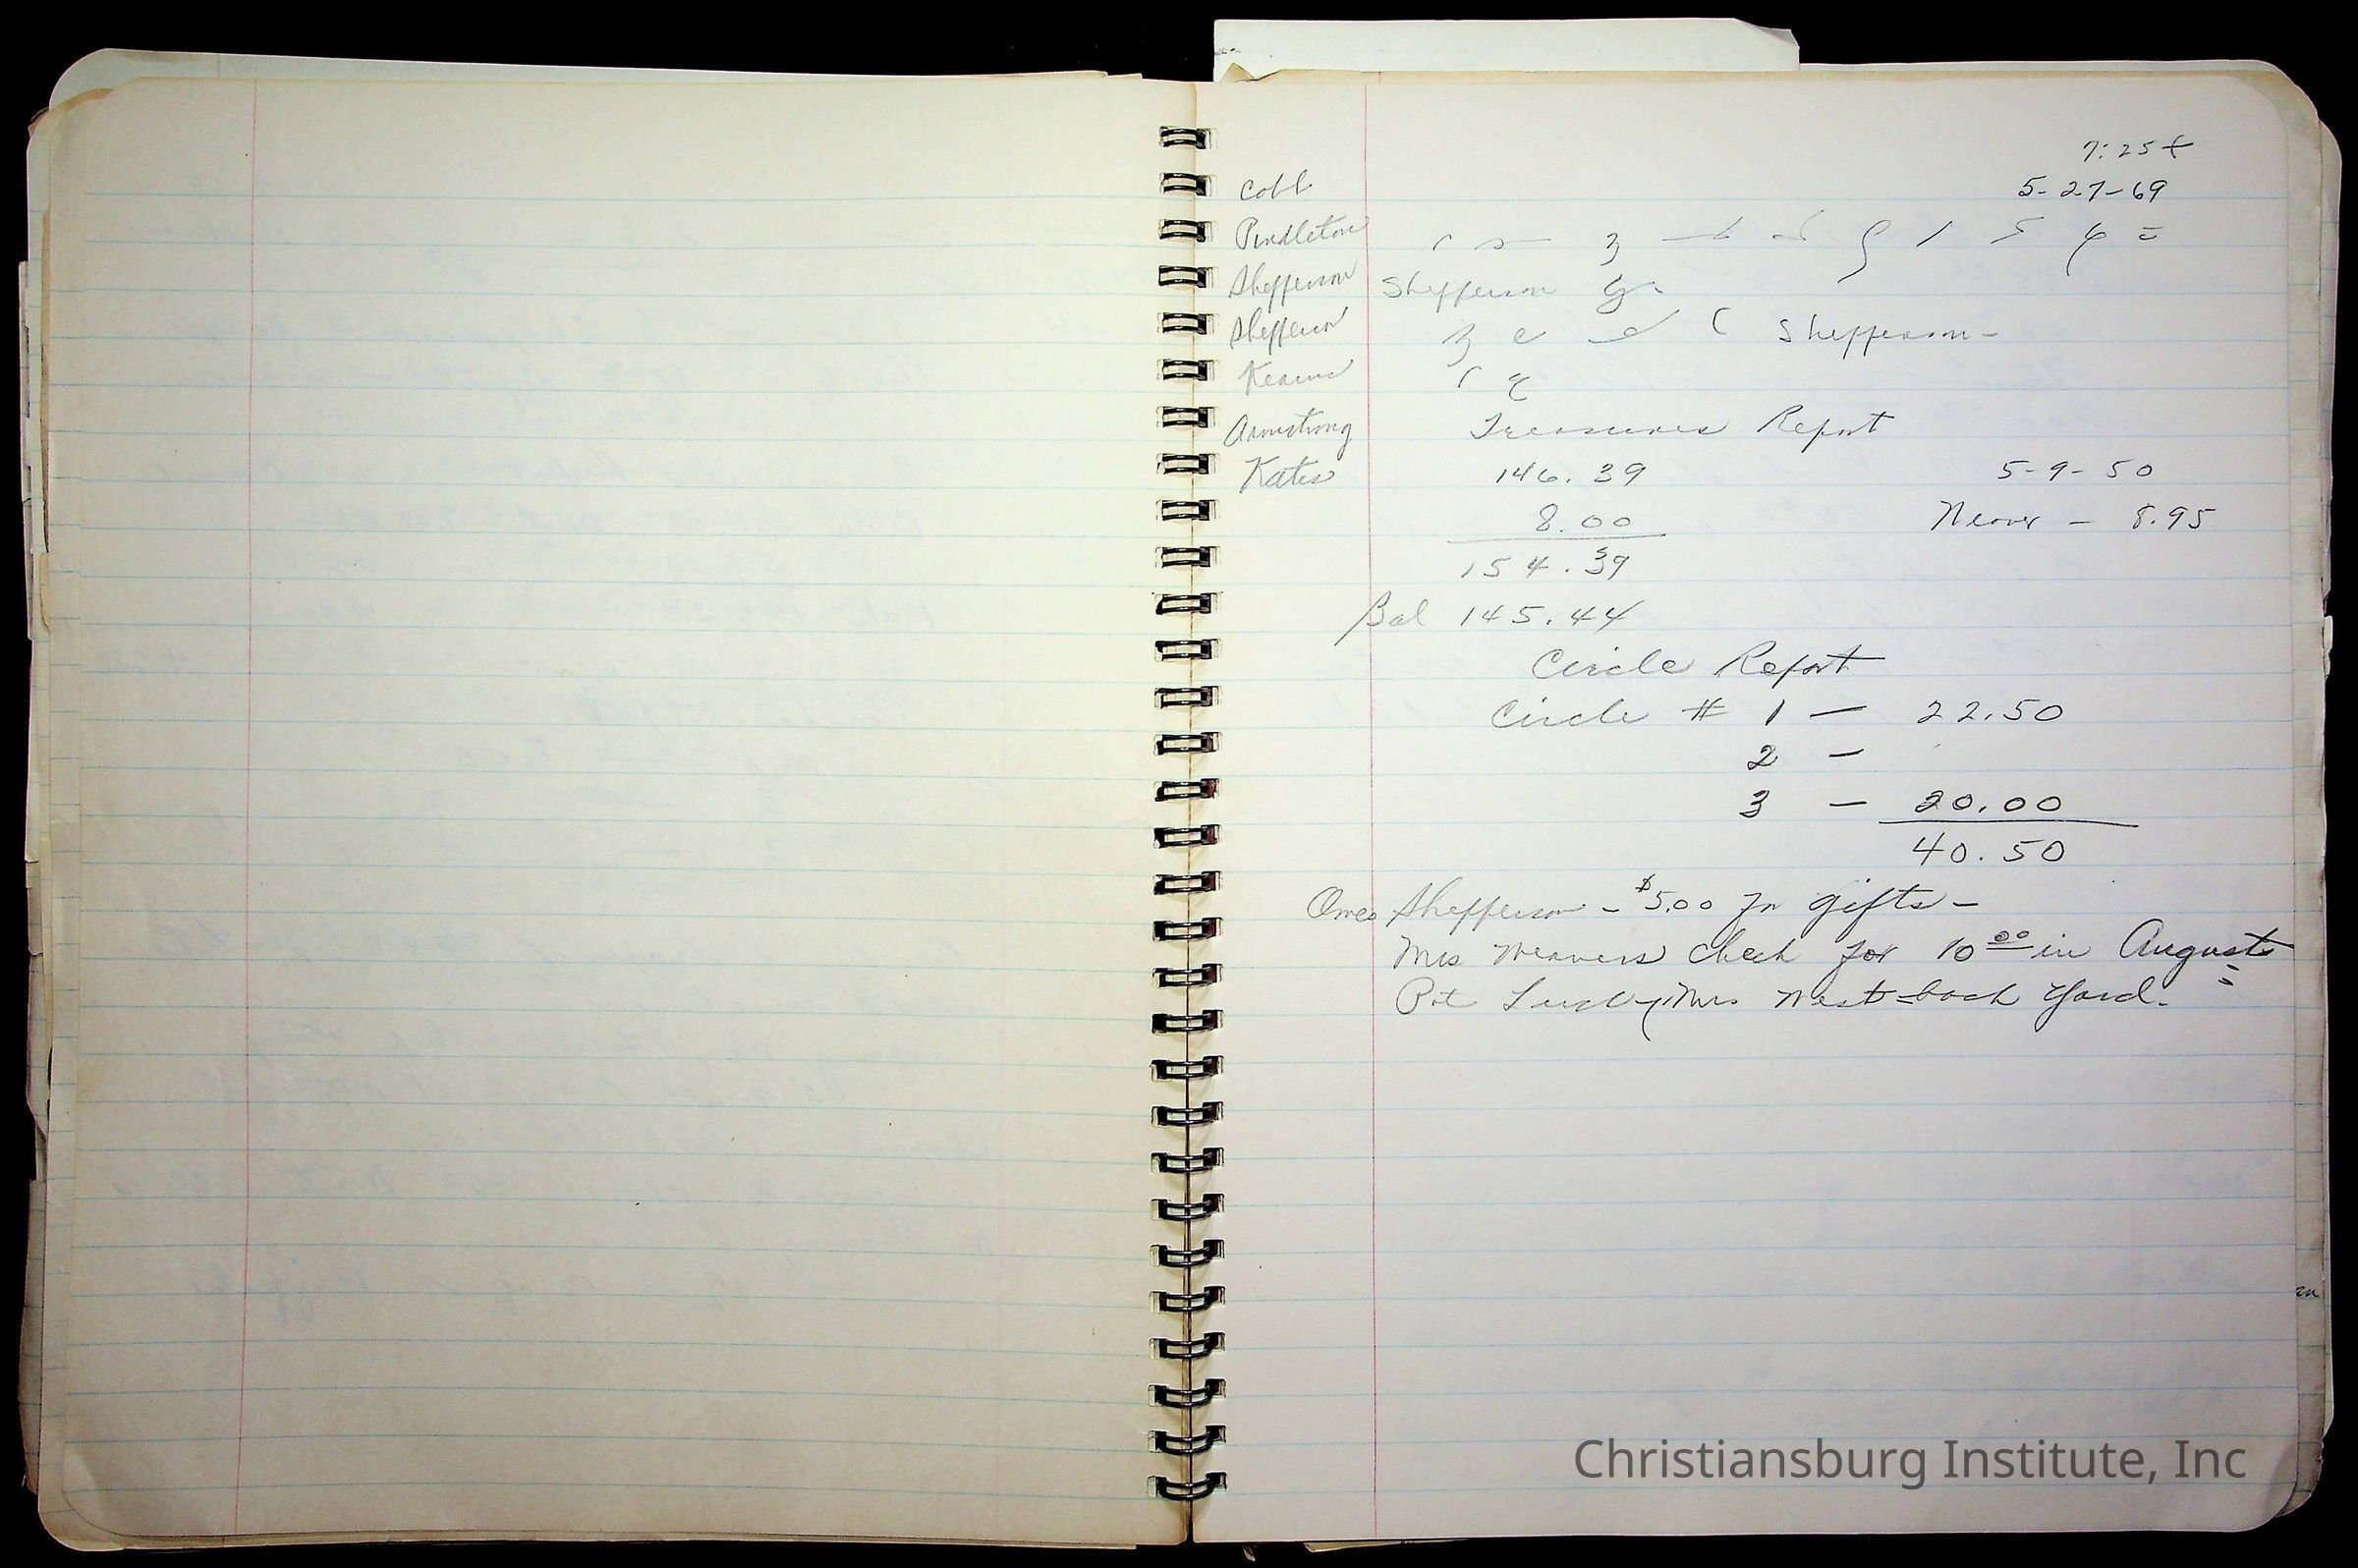 7:25
5-27-69
Cobb
Pendleton
Shefferson Shefferson
Shefferson Shefferson-
Kearns
Armstrong Treasures Report
Kates 146.39 5-9-50
8.00 Weaver - 8.95
154.39
Bal 145.44
Circle Report
Circle # 1 — 22.50
2 —
3 — 20.00
40.50
Owes Shefferson - $5.00 for gifts -
Mrs Weavers check for 10 00 in August
Pot Luck Mrs West-back yard.
Christiansburg Institute, Inc